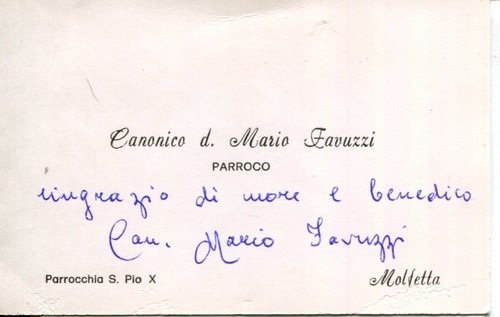 Canonico d. Mario Favuzzi
PARROCO
ringrazio di more e benedico
Can. Mario Favuzzi
Parrocchia S. Pio X
Molfetta